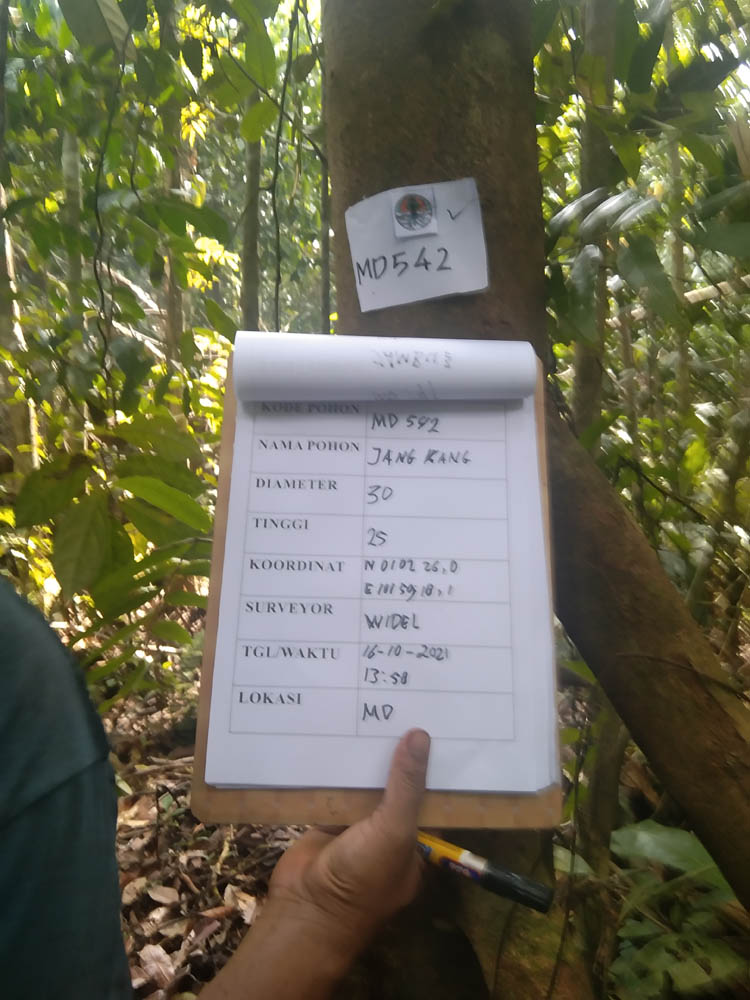 MD542
KODE POHON MD 542
NAMA POHON JANG KANG
DIAMETER 30
TINGGI 25
KOORDINAT N 0102 26,0
E 111 59, 18, 1
SURVEYOR WIDEL
TGL/WAKTU 16-10-2021
13:58
LOKASI MD